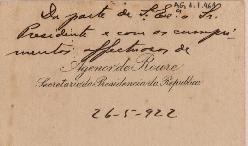 Da parte de S. Exª o Sr.
Presidente e com os cumpri
mentos affectuosos de
Agenor de Roure
Secretario da Presidencia da Republica
26-5-922